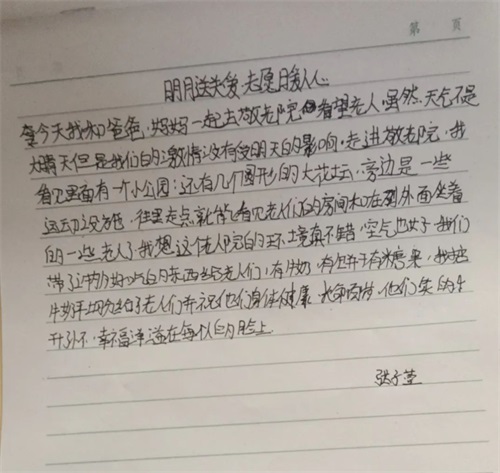 第 页
明月送关爱 志愿暖人心
今天我和爸爸,妈妈一起去敬老院看望老人虽然天气不是
大晴天但是我们的激情没有受阴天的影响.走进敬老院,我
看见里面有一个小公园;还有几个圆形的大花坛.旁边是一些
运动设施,往里走点就能看见老人们的房间和在到外面坐着
的一些老人了我想这个老人院的环境真不错,空气也好我们
带了许多好吃的东西给老人们,有牛奶,有饼干有糖果,我把
牛奶手切给了老人们并祝他们身体健康.长命百岁,他们笑的牛
开环.幸福洋溢在每个人的脸上.
张子萱